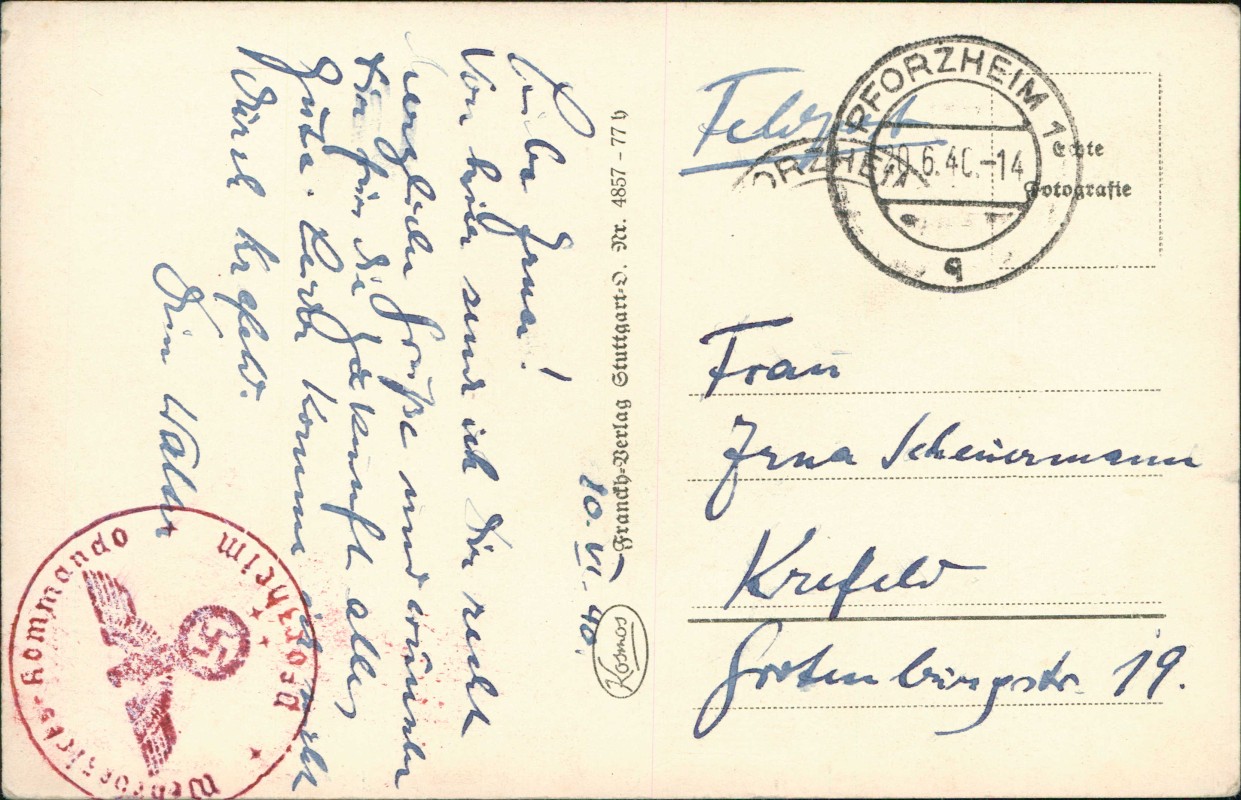 Liebe Irma!
Von hier sende ich Dir recht
herzliche Grüße und wünsche
Dir für die Zukunft alles
Gute. Leider komme ich nicht
durch Krefeld.
Dein Walter
10.VI.40.
Franckh-Verlag Stuttgart-O. Nr. 4857-77 h
Kosmos
Feldpost
PFORZHEIM 1
20.6.40.-14
q
ORZHEIM
Echte
Fotografie
Frau
Irma Scheuermann
Krefeld
Grotenburgstr. 19.
Wehrbezirks-Kommando
Pforzheim